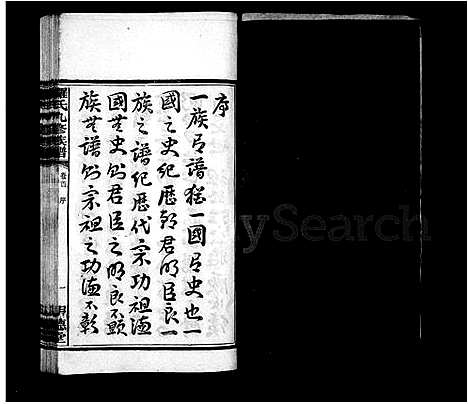 序
一族有譜猶一國有史也一
國之史紀歷朝君明臣良一
族之譜紀歷代宗功祖德
國無史則君臣之明良不顯
族無譜則宗祖之功德不彰
羅氏九修族譜
卷首 序
一
ySearch